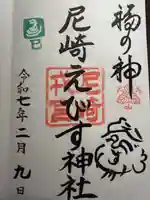 福の神
尼崎えびす神社
令和七年二月九日
巳